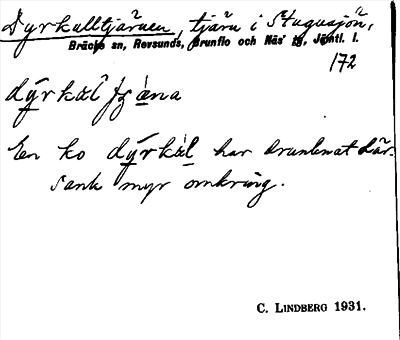 Dyrkulltjärnen, tjärn i Stugusjön,
Bräcke sn, Revsunds, Brunflo och Näs' tg, Jämtl. l.
172
En ko dýrkäl har drunknat där.
Sank myr omkring.
C. LINDBERG 1931.